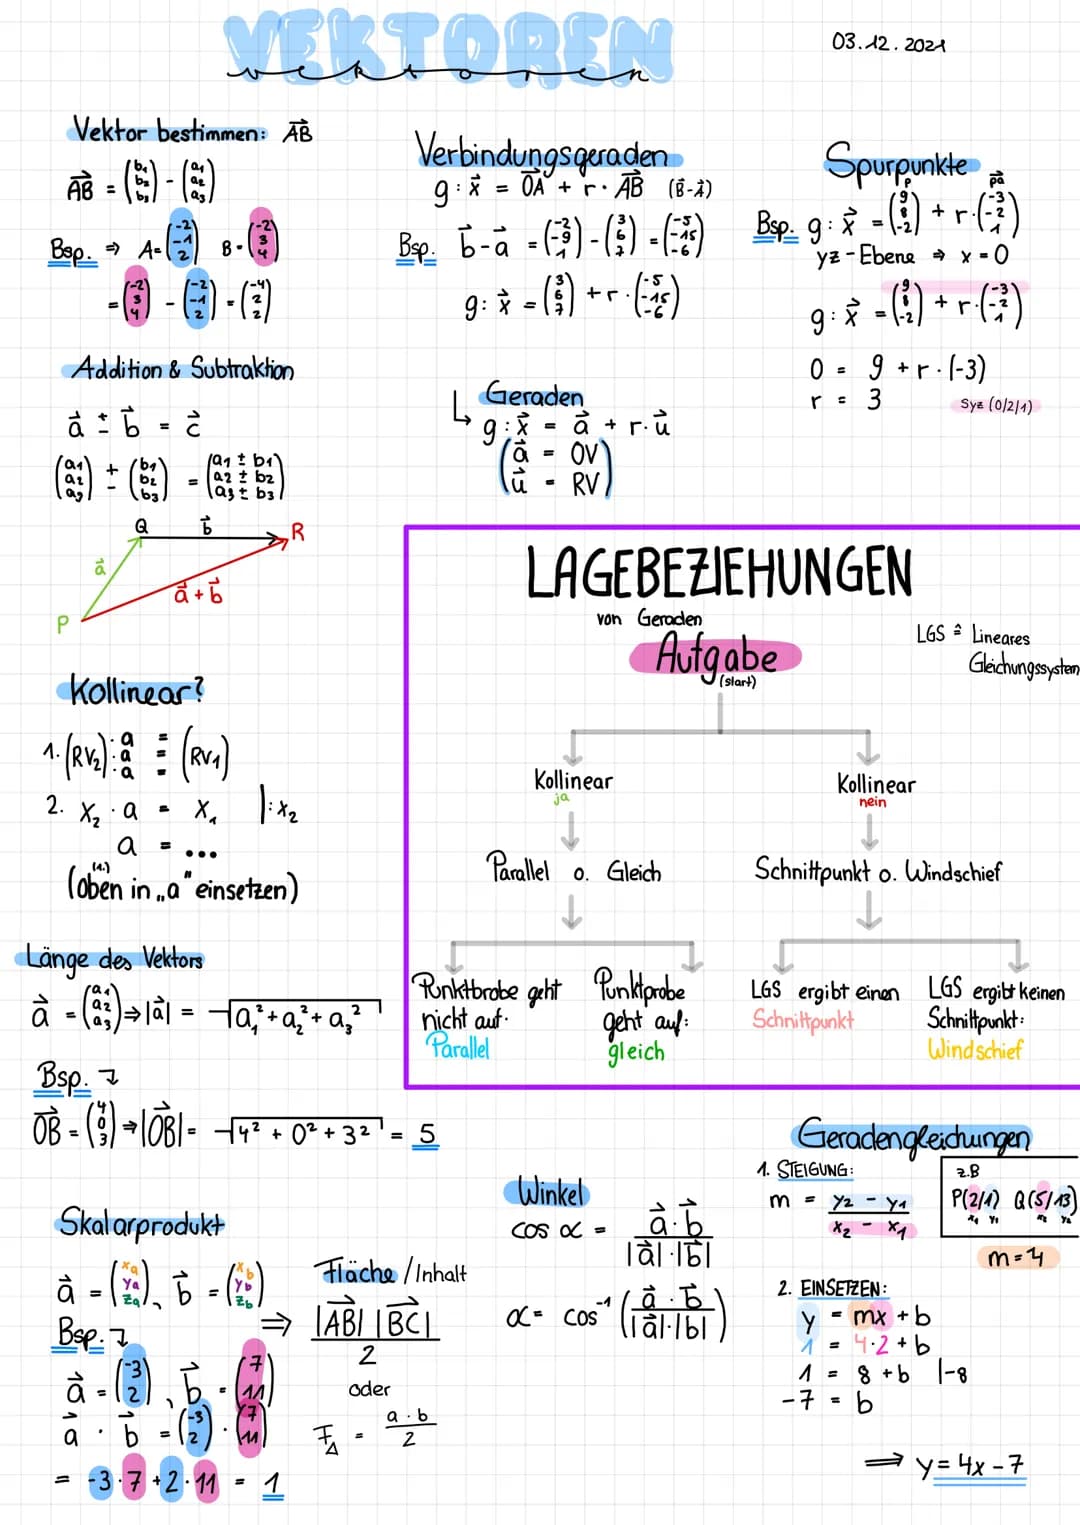 VEKTOREN
vektoren
03.12.2021
Vektor bestimmen: AB→
AB→ = (b₁ b₂ b₃) - (a₁ a₂ a₃)
Bsp. ⇒ A=(-2 -1 2) B=(-2 3 4)
= (-2 3 4) - (-2 -1 2) = (-4 2 2)
Addition & Subtraktion
a→ ± b→ = c→
(a₁ a₂ a₃) ± (b₁ b₂ b₃) = (a₁ ± b₁ a₂ ± b₂ a₃ ± b₃)
Q b→ R
a→
a→ + b→
P
Kollinear?
1. (RV₂) · a = (RV₁)
· a =
· a =
2. x₂ · a = x₁ |: x₂
a = ...
(oben (1.) in „a" einsetzen)
Länge des Vektors
a→ = (a₁ a₂ a₃) ⇒ |a→| = √a₁² + a₂² + a₃²
Bsp.
OB→ = (4 0 3) ⇒ |OB→| = √4² + 0² + 3² = 5
Skalarprodukt
a→ = (xa ya za), b→ = (xb yb zb)
Bsp.
a→ = (-3 2), b→ = (7 11)
a→ · b→ = (-3 2) · (7 11)
= -3·7 + 2·11 = 1
Verbindungsgeraden
g: x→ = OA→ + r· AB→ (B→-A→)
Bsp. b→-a→ = (-2 -9 1) - (3 6 7) = (-5 -15 -6)
g: x→ = (3 6 7) + r·(-5 -15 -6)
↳ Geraden
g: x→ = a→ + r·u→
(a→ = OV
u→ = RV)
Spurpunkte
Bsp. g: x→ = P (9 8 -2) + r·pa→ (-3 -2 1)
yz-Ebene ⇒ x = 0
g: x→ = (9 8 -2) + r·(-3 -2 1)
0 = 9 + r·(-3)
r = 3
Syz (0/2/1)
LAGEBEZIEHUNGEN
von Geraden
Aufgabe
(start)
LGS ≙ Lineares
Gleichungssystem
Kollinear
ja
Kollinear
nein
Parallel o. Gleich
Schnittpunkt o. Windschief
Punktbrobe geht
nicht auf:
Parallel
Punktprobe
geht auf:
gleich
LGS ergibt einen
Schnittpunkt
LGS ergibt keinen
Schnittpunkt:
Windschief
Fläche/Inhalt
⇒ |AB→| |BC→| / 2
oder
F△ = a·b / 2
Winkel
cos α = a→·b→ / |a→|·|b→|
α = cos⁻¹ (a→·b→ / |a→|·|b→|)
Geradengleichungen
1. STEIGUNG:
m = y₂ - y₁ / x₂ - x₁
z.B
P(2/1) Q(5/13)
x₁ y₁ x₂ y₂
m=4
2. EINSETZEN:
y = mx + b
1 = 4·2 + b
1 = 8 + b |-8
-7 = b
⇒ y = 4x - 7